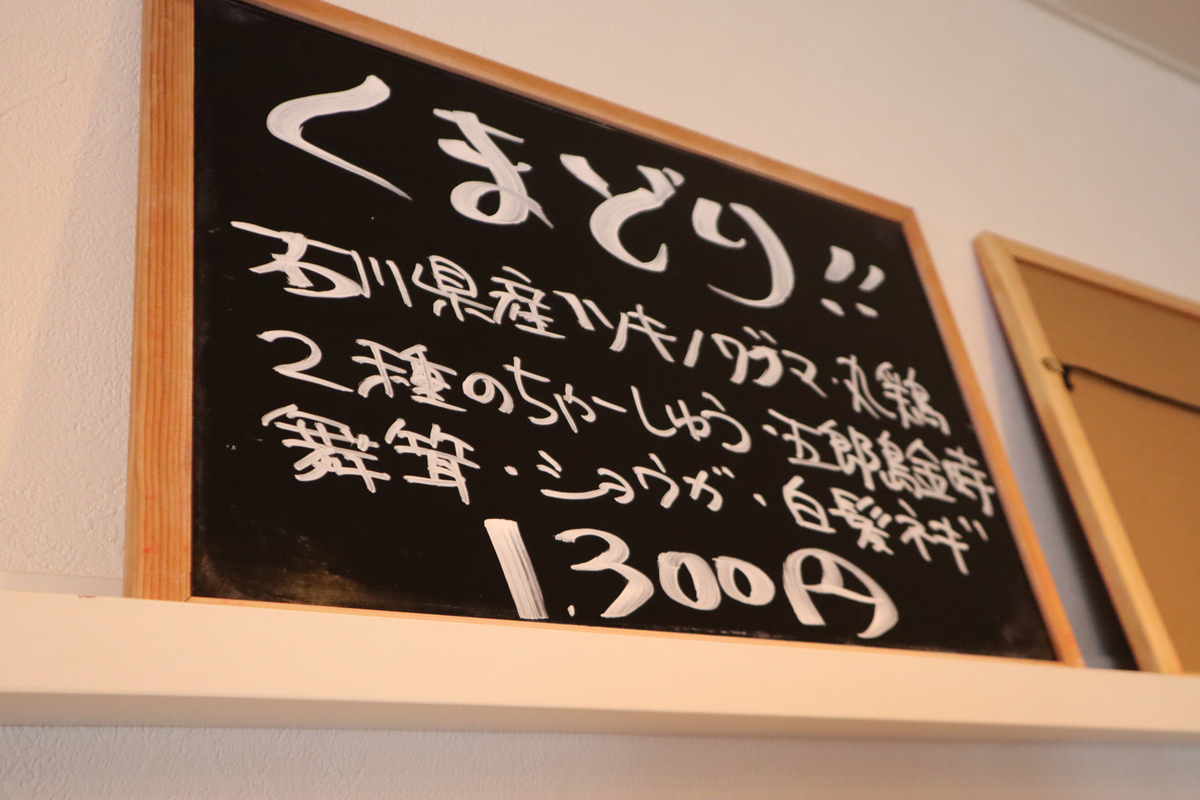 くまどり!!
石川県産ツキノワグマ・丸鶏
2種のちゃーしゅう・五郎島金時
舞茸・ショウガ・白髪ネギ
1.300円